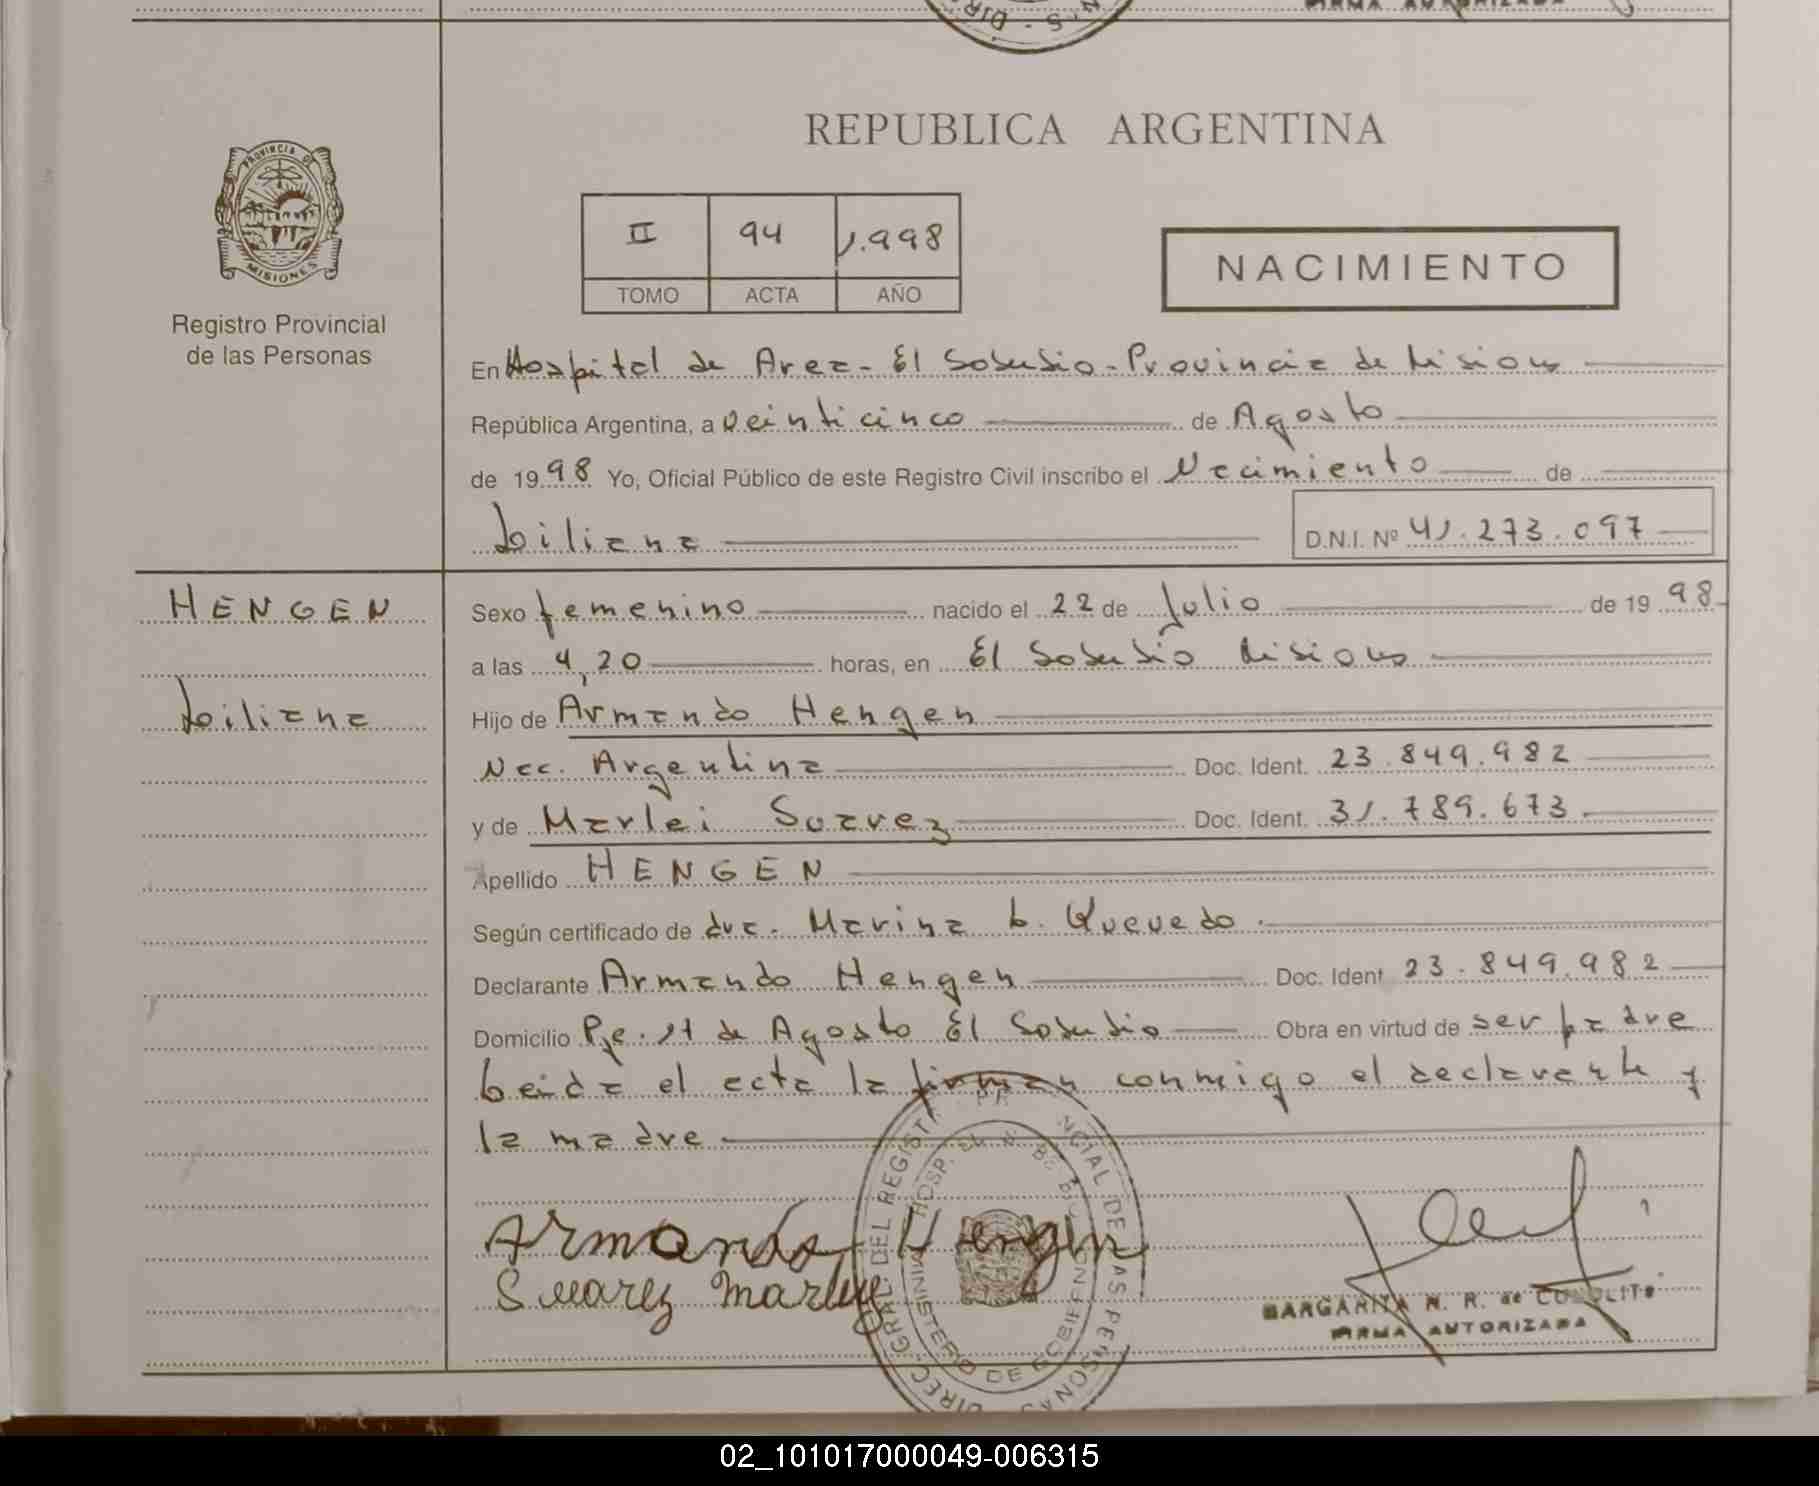 FIRMA AUTORIZADA
REPUBLICA ARGENTINA
PROVINCIA DE
MISIONES
II 94 1.998
TOMO ACTA AÑO
NACIMIENTO
Registro Provincial
de las Personas
En Hospital de Area - El Soberbio - Provincia de Misiones
República Argentina, a veinticinco de Agosto
de 1998 Yo, Oficial Público de este Registro Civil inscribo el Nacimiento de
Liliana D.N.I. Nº 41.273.097
HENGEN
Liliana
Sexo femenino nacido el 22 de Julio de 1998
a las 4,20 horas, en El Soberbio Misiones
Hijo de Armando Hengen
Nac. Argentina Doc. Ident. 23.849.982
y de Marlei Suarez Doc. Ident. 31.789.673
Apellido HENGEN
Según certificado de dra. Marina L. Quevedo
Declarante Armando Hengen Doc. Ident. 23.849.982
Domicilio Pje. 21 de Agosto El Soberbio Obra en virtud de ser padre
Leida el acta la firman conmigo el declarante y
la madre
Armando Hengen
Suarez Marley
MARGARITA N. R. de
FIRMA AUTORIZADA
DIREC. GRAL. DEL REGISTRO PROVINCIAL DE LAS PERSONAS
MINISTERIO DE GOBIERNO
HOSP.
02_101017000049-006315